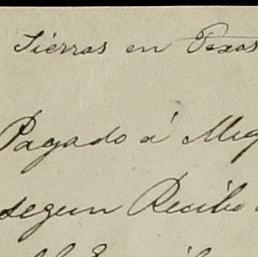 Tierras en Texas
Pagado á Mig
segun Recibo